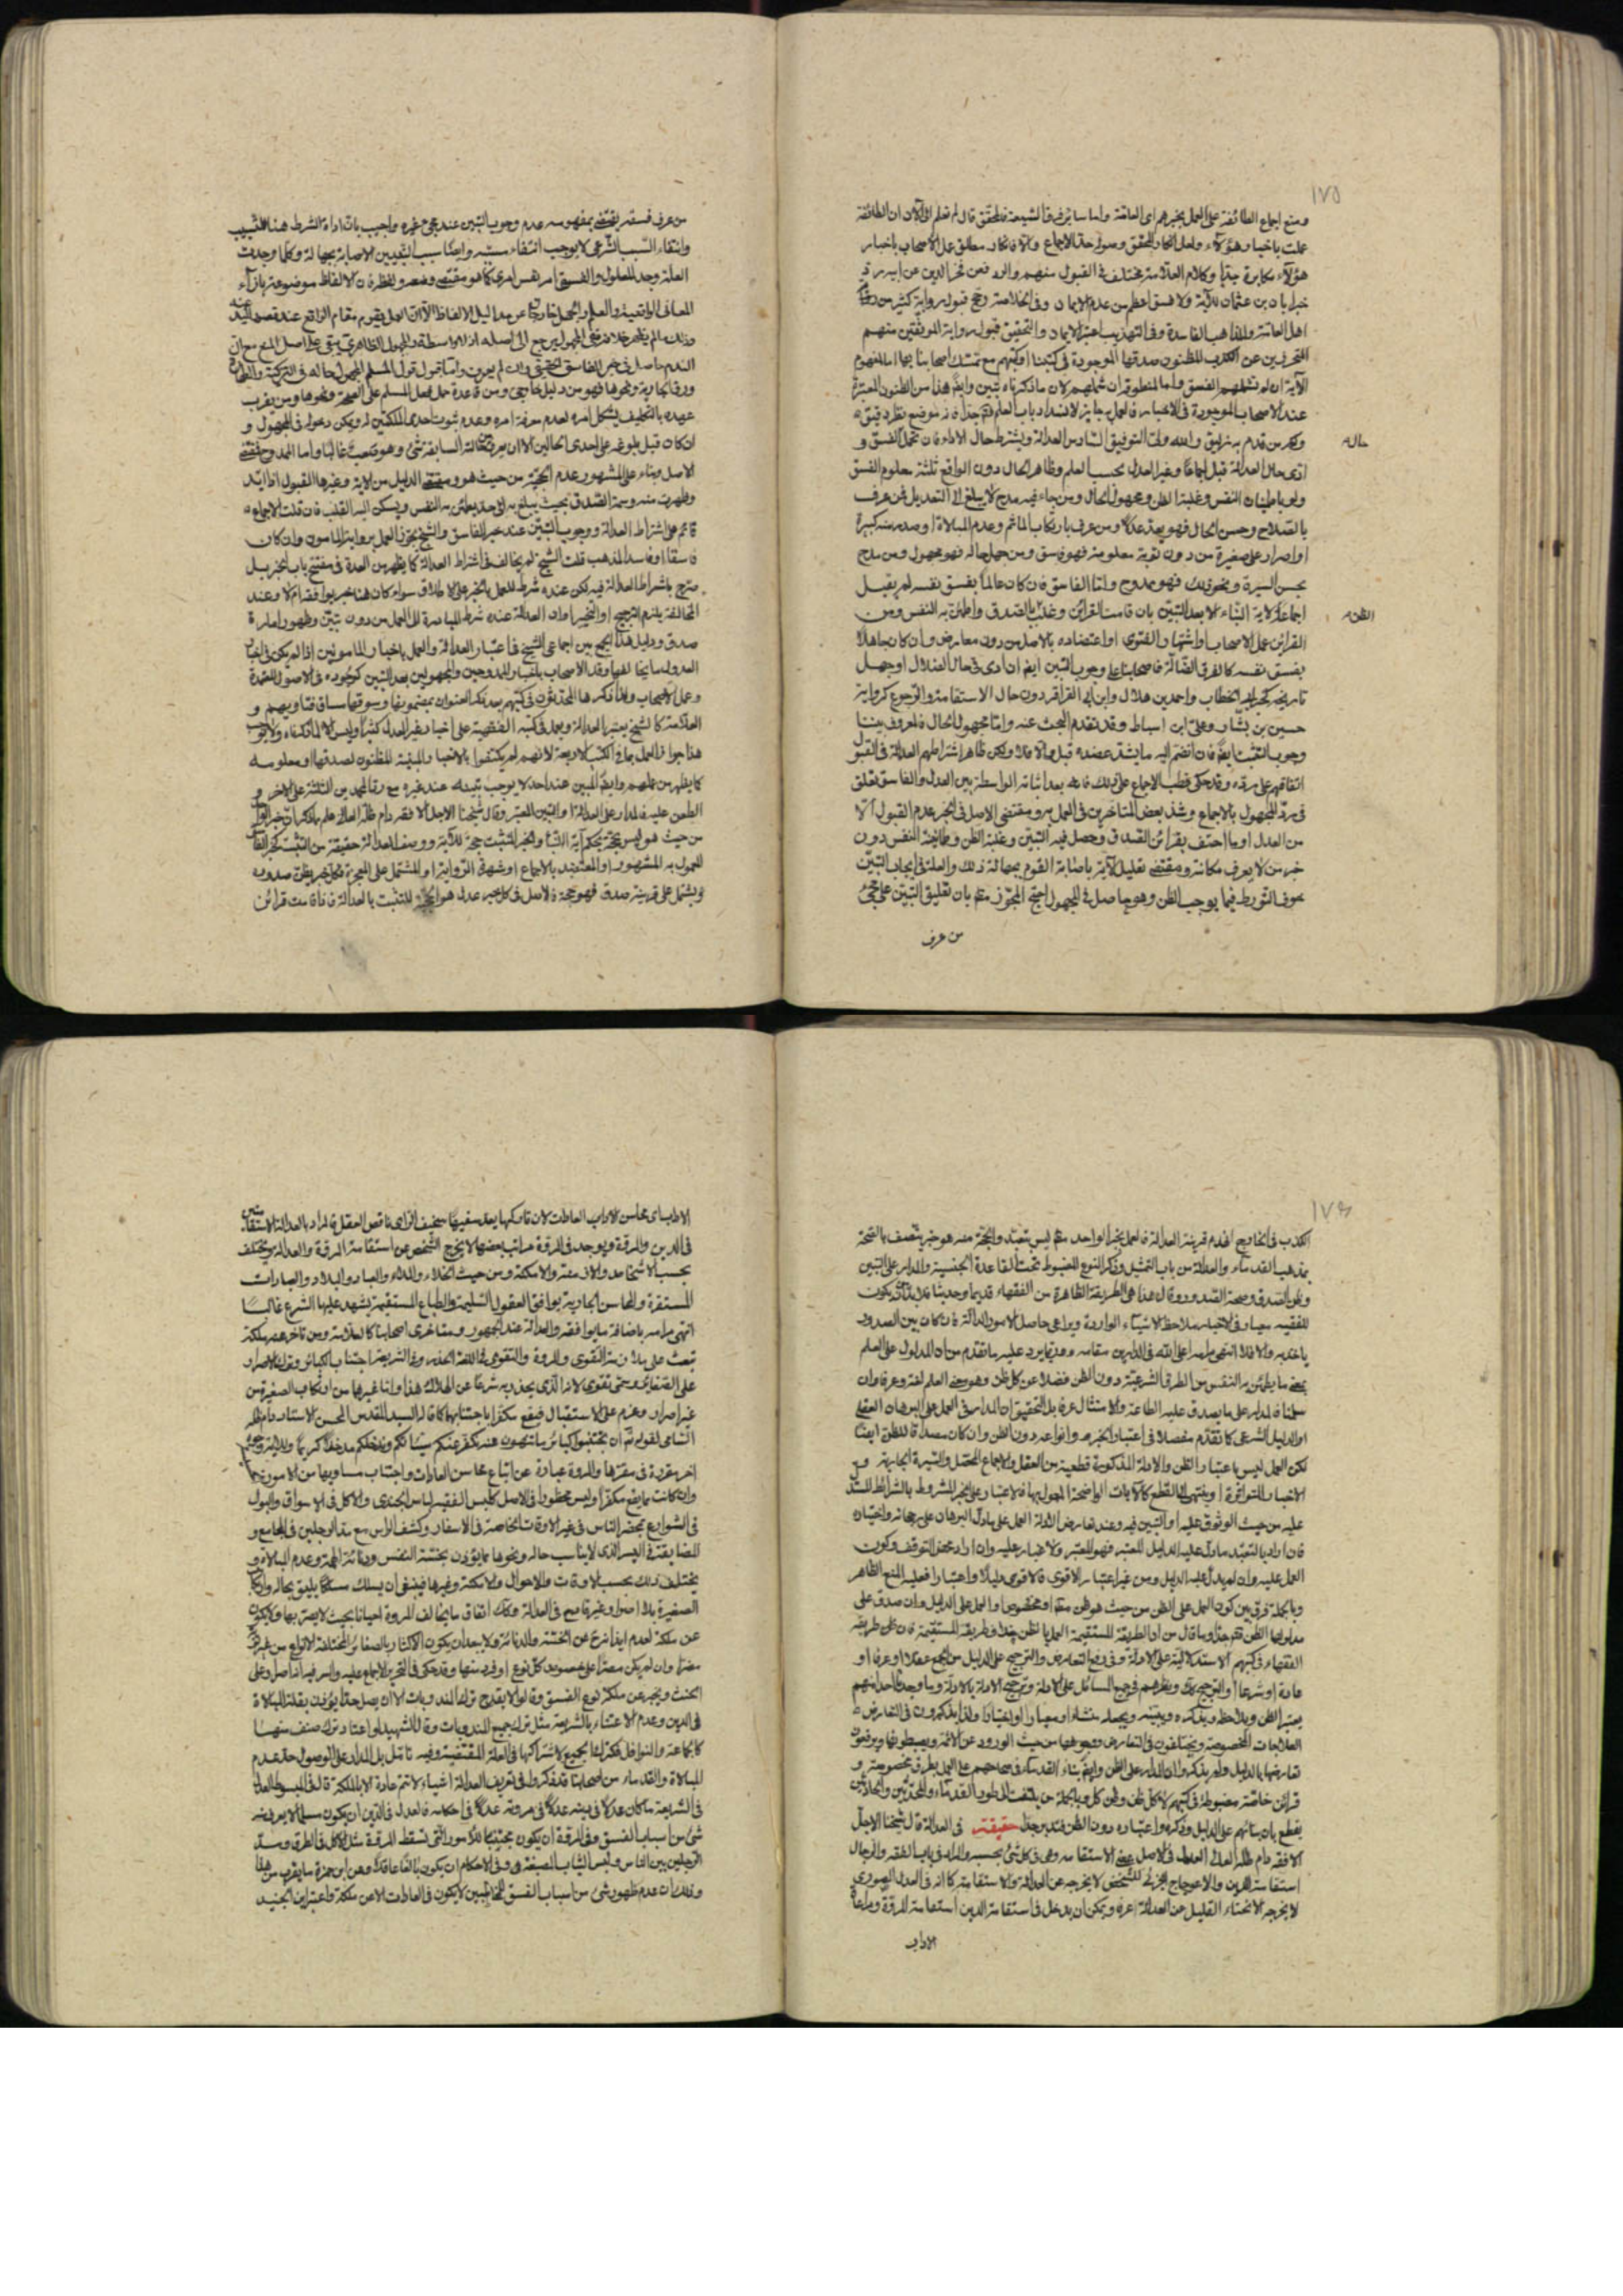 ١٧٥
ومنع اجماع الطائفة على العمل بخبرهم اى العامة واما ساير فرق الشيعة فالمحقق قال لم نعلم الى الآن ان الطائفة
عملت باخبار هؤلاء ولعل انكار المحقق وصوله حد الاجماع والا فانكار مطلق عمل الاصحاب باخبار
هؤلاء مكابرة جدا وكلام العلامة مختلف فى القبول منهم والرد فعن فخر الدين عن ابيه رد
خبر ابان بن عثمان للآية ولا فسق اعظم من عدم الايمان وفى الخلاصة رجح قبول رواية كثير من
اهل العامة والمذاهب الفاسدة وفى التهذيب اعتبر الايمان والتحقيق قبول رواية الموثقين منهم
المتحرزين عن الكذب المظنون صدقها الموجودة فى كتبنا او كتبهم مع تمسك اصحابنا بها اما لمفهوم
الآية ان لم تشملهم الفسق واما لمنطوقه ان شملهم لان ما ذكرناه تبين وايضا هذا من الظنون المعتبرة
عند الاصحاب الموجودة فى الاخبار فالعمل به جايز لانسداد باب العلم فتم جدا فانه موضع نظر دقيق
وكم من قدم به زليق والله ولى التوفيق السادس العدالة ويشترط حال الاداء فان تحمل الفسق و
حاله
ادى حال العدالة قبل اجماعا وغير العدل بحسب العلم وظاهر الحال دون الواقع ثلثة معلوم الفسق
ولو باطمينان النفس وغلبة الظن ومجهول الحال ومن جاء فيه مدح لا يبلغ الى التعديل فمن عرف
بالصلاح وحسن الحال فهو يعد عدلا ومن عرف بارتكاب المآثم وعدم المبالاة او صدر منه كبيرة
او اصرار على صغيرة من دون توبة معلومة فهو فاسق ومن جهل حاله فهو مجهول ومن مدح
بحسن السيرة ونحو ذلك فهو ممدوح واما الفاسق فان كان عالما بفسق نفسه لم يقبل
اجماعا لآية النبأ الا بعد التبين بان قامت القرائن وغلب بالصدق واطمئن به النفس ومن
الظن
القرائن عمل الاصحاب واشتهار الفتوى او اعتضاده بالاصل من دون معارض وان كان جاهلا
بفسق نفسه كالفرق الضالة فاصحابنا على وجوب التبين ايضا ان ادى فى حال الضلال او جهل
تاريخه كخبر ابى الخطاب واحمد بن هلال وابن ابى القراقر دون حال الاستقامة والرجوع كرواية
حسين بن بشار وعلى ابن اسباط وقد تقدم البحث عنه واما مجهول الحال فالمعروف بيننا
وجوب التثبت ايضا فان انضم اليه ما يشد عضده قبل والا فلا ولكن ظاهر اشتراطهم العدالة فى القبول
اتفاقهم على رده وقد حكى قطب الاجماع على ذلك فانه بعد اثباته الواسطة بين العدل والفاسق تعلق
فى رد المجهول بالاجماع وشذ بعض المتاخرين فى العمل به ومقتضى الاصل فى الخبر عدم القبول الا
من العدل او ما احتف بقرائن الصدق وحصل فيه التبين وغلبة الظن وطمانينة النفس دون
خبر من لا يعرف مكانه ومقتضى تعليل الآية باصابة القوم بجهالة ذلك والعلة فى ايجاب التبين
خوف التورط فيما يوجب الظن وهو حاصل فى المجهول احتج المجوز منهم بان تعليق التبين على مجئ
من عرف
من عرف فسقه يقتضى بمفهومه عدم وجوب التبين عند مجئ غيره واجيب بان اداة الشرط هنا للسبب
وانتفاء السبب الشرعى لا يوجب انتفاء مسببه وايضا سبب التبين الاصابة بجهالة وكلما وجدت
العلة وجد المعلول والفسق امر نفس امرى كما هو مقتضى وضعه ولفظه فان الالفاظ موضوعة بازاء
المعانى الواقعية والعلم والجهل خارجان عن مداليل الالفاظ الا ان العمل يقوم مقام الواقع عند قصد اليه
وذلك ما لم يظهر خلافه ففى المجهول يرجع الى اصله اذ لا واسطة والمجهول الظاهرى يبقى على اصل المنع مع ان
الندم حاصل فى خبر الفاسق الحقيقى وان لم يعرف واما قبول قول المسلم المجهول حاله فى التزكية والطهارة
ورق الجارية ونحوها فهو من دليل خارجى ومن قاعدة حمل فعل المسلم على الصحة ونحوها ومن يقرب
عهده بالتكليف يشكل امره لعدم معرفة امره وعدم ثبوت احدى الملكتين له ويمكن دخوله فى المجهول و
ان كان قبل بلوغه على احدى الحالين الا ان يعرف حالته السابقة بشئ وهو متعب غالبا واما الممدوح فمقتضى
الاصل وبناء على المشهور عدم الحجية من حيث هو ومقتضى الدليل من الآية وغيرها القبول اذا ايد
وظهرت منه وسمة الصدق بحيث يبلغ به الى حد يطمئن به النفس ويسكن اليه القلب فان قلت الاجماع
قائم على اشتراط العدالة ووجوب التبين عند خبر الفاسق والشيخ يجوز العمل برواية المامون وان كان
فاسقا او فاسد المذهب قلت الشيخ لم يخالف فى اشتراط العدالة كما يظهر من العدة فى مفتتح باب الخبر بل
صرح باشتراط العدالة فيه لكن عنده شرط للعمل بالخبر على الاطلاق سواء كان هنا خبر يوافقه ام لا وعند
المخالفة يلزم الترجيح او التخيير او ان العدالة عنده شرط للمبادرة الى العمل من دون تبين وظهور امارة
صدق ودليل هذا الجمع بين اجماعى الشيخ فى اعتبار العدالة والعمل باخبار المامونين اذا لم يكن فى اخبار
العدول ما يخالفها وقبل الاصحاب باخبار الممدوحين والمجهولين بعد التبين كوجوده فى الاصول المعتمدة
وعمل الاصحاب ولذا ذكرها المحدثون فى كتبهم بعد ذكر العنوان بمضمونها وسوقها مساق فتاويهم و
العلامة كالشيخ يعتبر العدالة ويعمل فى كتبه الفقهية على اخبار غير العدل كثيرا وليس الا لما ذكرناه ولا يوجب
هذا جواز العمل بما فى الكتب الاربعة لانهم لم يكتفوا بالاخبار المبينة المظنون لصدقها او معلومه
كما يظهر من عملهم وايضا التبين عند احد لا يوجب تبينه عند غيره مع رد المحمدين الثلثة على الآخر و
الطعن عليه فالمدار على العدالة او التبين المعتبر وقال شيخنا الاجل الافقه دام ظله العالى
من حيث هو ليس بحجة بحكم آية النبأ والخبر المتثبت حجة للآية ووصف العدالة حقيقة من التثبت كخبر الفاسق
المعمول به المشهور او المعتضد بالاجماع او شهرة الرواية او المشتمل على المعجزة وكل خبر يظن صدوره
ويشتمل على قرينة صدق فهو حجة فالاصل فى كل خبر عدل هو الحجية للتثبت بالعدالة فاذا قامت قرائن
١٧٦
الكذب فى الخارج انهدم قرينة العدالة فالعمل بخبر الواحد منهم ليس بتعبد والحجة منه هو خبر يتصف بالصحة
بمذهب القدماء والعدالة من باب التمثيل وذكر النوع المضبوط تحت القاعدة الجنسية والمدار على التبين
وظن الصدق وصحة الصدور وقال هذا هى الطريقة الظاهرة من الفقهاء قديما وحديثا فلا بد ان يكون
للفقيه معيار فى الاخبار بملاحظة الاشياء الواردة ويراعى حاصل الامور الدالة فان كان بين الصدور
ياخذ به والا فلا انتهى مرامه اعلى الله فى الدارين مقامه وربما يرد عليه ما تقدم من ان المدلول على العلم
بمعنى ما يطمئن به النفس من الطرق الشرعية دون الظن فضلا عن كل ظن وهو معنى العلم لغة وعرفا وان
سلمنا فالمدار على ما يصدق عليه الطاعة والامتثال عرفا بل التحقيق ان المدار فى العمل على البرهان العقلى
او الدليل الشرعى كما تقدم مفصلا فى اعتبار الخبر وانواعه دون الظن وان كان مصداقا للظن ايضا
لكن العمل ليس باعتبار الظن والادلة المذكورة قطعية من العقل والاجماع المحصل والسيرة الجارية و
الاخبار المتواترة او ينتهى الى القطع كالآيات الواضحة المعول بها فالاعتبار على الخبر المشروط بالشرائط المستدل
عليه من حيث الوثوق عليه او التبين فيه وعند تعارض الادلة العمل على ما دل البرهان على رجحانه واختياره
فان اراد بالتعبد ما دل عليه الدليل المعتبر فهو المعتبر والاخبار عليه وان اراد محض التوقف وكون
العمل عليه وان لم يدل عليه الدليل ومن غير اعتبار الاقوى فالاقوى دليلا واعتبارا فعليه المنع الظاهر
وبالجملة فرق بين كون العمل على الظن من حيث هو ظن مطلقا او مخصوصا والعمل على الدليل وان صدق على
مدلولها الظن فتم جدا وما قال من ان الطريقة المستقيمة العمل بالظن خلاف طريقة المستقيمة فان ظن طريقة
الفقهاء فى كتبهم الاستدلالية على الادلة وفى دفع التعارض والترجيح على الدليل من الجمع عقلا او عرفا او
عادة او شرعا او الترجيح بذلك ونظرهم فى جميع المسائل على الادلة وترجيح الادلة بالادلة وما وجدنا احدا منهم
يعتبر الظن ويلاحظه ويذكره ويبينه ويجعله منشاء او معيارا او اختيارا ولذا يذكرون فى التعارض
العلاجات المخصوصة ويختلفون فى التعارض وجوهها من حيث الورود عن الائمة ويضبطونها ويرفعون
تعارضها بالدليل ولم يذكروا ان المدار على الظن وايضا بناء القدماء فى صحاحهم على العمل بطرق مخصوصة و
قرائن خاصة مضبوطة فى كتبهم لا كل ظن وظن كل وبالجملة من يلتفت الى طور القدماء والمحدثين والحلاين
يقطع بان بنائهم على الدليل وذكره واعتباره دون الظن فتدبر جدا حقيقة فى العدالة قال شيخنا الاجل
الافقه دام ظله العالى العدالة فى الاصل بمعنى الاستقامة وهى فى كل شئ بحسبه والمراد فى باب الفقه والرجال
استقامة الدين والاعوجاج الجزئى للشخص لا يخرجه عن العدالة والاستقامة كما انه فى العدل الصورى
لا يخرجه الانحناء القليل عن العدالة عرفا ويمكن ان يدخل فى استقامة الدين استقامة المروة ومراعاة
الاداب
الاداب اى محاسن الاداب العادات لان تاركها يعد سفيها سخيف الراى ناقص العقل فالمراد بالعدالة الاستقامتين
فى الدين والمروة ويوجد فى المروة مراتب بعضها لا يخرج الشخص عن استقامة المروة والعدالة ويختلف
بحسب الاشخاص والازمنة والامكنة ومن حيث الخلاء والملاء والعباد والبلاد والعبارات
المستقرة والمحاسن الجارية يوافق العقول السليمة والطباع المستقيمة يشهد عليها الشرع غالبا
انتهى مرامه باضافة ما يوافقه والعدالة عند الجمهور ومتاخرى اصحابنا كالعلامة ومن تاخر عنه ملكة
تبعث على ملازمة التقوى والمروة والتقوى فى اللغة الحذر وفى الشريعة اجتناب الكبائر وترك الاصرار
على الصغائر وسمى تقوى لانه الذى يحذر به شرعا عن الهلاك هذا واما غيرها من ارتكاب الصغيرة من
غير اصرار وعزم على الاستقبال فيقع مكفرا باجتنابها كما قال السيد المقدس المحسن الاستاد دام ظله
السامى لقوله تعالى ان تجتنبوا كبائر ما تنهون عنه نكفر عنكم سيئاتكم وندخلكم مدخلا كريما وللآية وجوه
اخر مقررة فى مقرها والمروة عبارة عن اتباع محاسن العادات واجتناب مساويها من الامور المباحة
وان كانت مما يقع مكفرا وليس محظورا فى الاصل كلبس الفقيه لباس الجندى والاكل فى الاسواق والبول
فى الشوارع بمحضر الناس فى غير الاوقات الخاصة فى الاسفار وكشف الراس مع مد الرجلين فى المجامع و
المضايقة فى اليسر الذى لا يناسب حاله ونحوها مما يؤذن بخسة النفس ودنائة الهمة وعدم المبالاة و
يختلف ذلك بحسب الاوقات والاحوال والامكنة وغيرها فينبغى ان يسلك مسلكا يليق بحاله وارتكاب
الصغيرة بلا اصرار غير قادح فى العدالة وكذا اتفاق ما يخالف المروة احيانا بحيث لا يضر بها ولا يكون
عن ملكة لعدم ايذانه ح عن الخسة والدنائة ولا يبعد ان يكون الاكثار بالصغائر المختلفة الانواع من غير توبة
مضرا وان لم يكن مصرا على خصوص كل نوع او فرد منها وقد حكى فى التحرير الاجماع عليه والسر فيه انه اصل وعلى
الخبث ويخبر عن ملكة نوع الفسق وقالوا لا يقدح ترك المندوبات الا ان يصل حدا يؤذن بقلة المبالاة
فى الدين وعدم الاعتناء بالشريعة مثل ترك جميع المندوبات وقال الشهيد لو اعتاد ترك صنف منها
كالجماعة والنوافل فكترك الجميع لاشتراكها فى العلة المقتضية وفيه تامل بل المدار على الوصول حد عدم
المبالاة والقدماء من اصحابنا قد ذكروا فى تعريف العدالة اشياء لا تتم عادة الا بالملكة قال فى المبسوط العدالة
فى الشريعة ما كان عدلا فى دينه عدلا فى مروته عدلا فى احكامه فالعدل فى الدين ان يكون مسلما لا يعرف منه
شئ من اسباب الفسق وفى المروة ان يكون مجتنبا للامور التى تسقط المروة مثل الاكل فى الطرق ومد
الرجلين بين الناس ولبس الثياب المصبغة وفى الاحكام ان يكون بالغا عاقلا وعن ابن حمزة ما يقرب من هذا
وذلك ان عدم ظهور شئ من اسباب الفسق للمخاطبين لا يكون فى العادات الا عن ملكة واعتبر ابن الجنيد